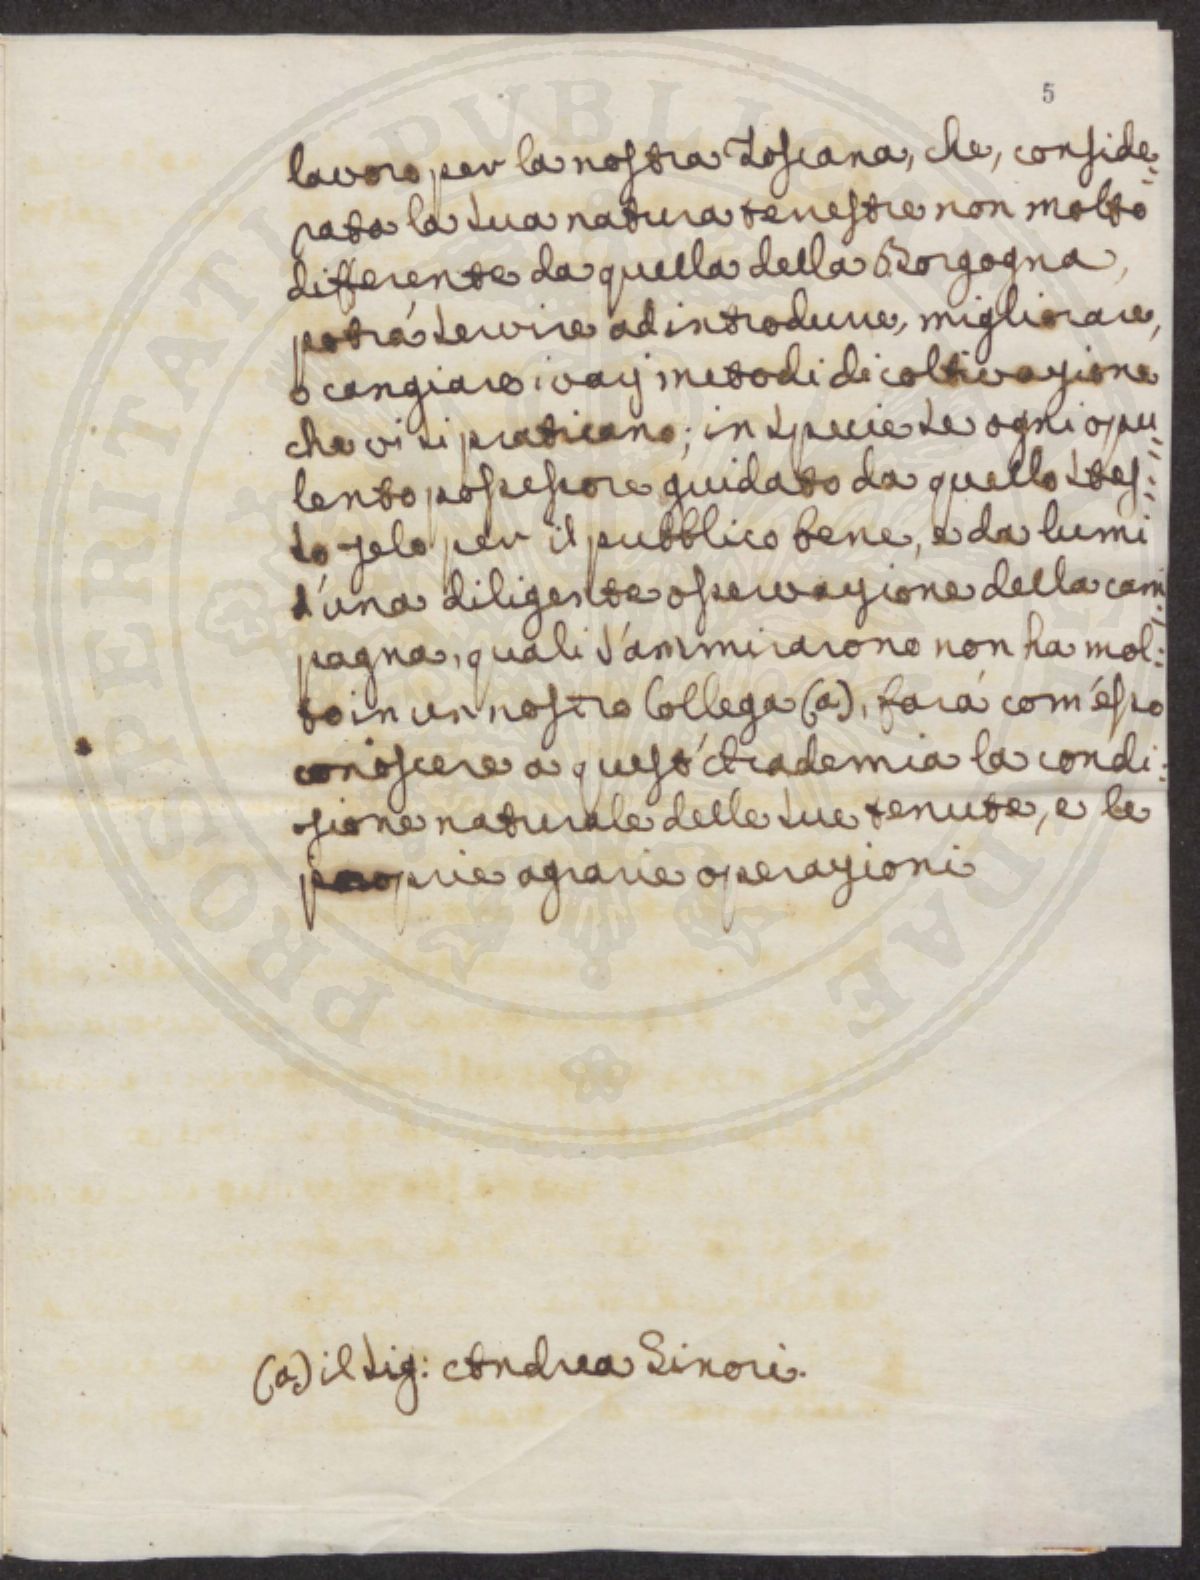 5
lavoro, per la nostra Toscana, che, conside-
rata la sua natura terrestre non molto
differente da quella della Borgogna,
potrá servire ad introdurre, migliorare,
o cangiare i varj metodi di coltivazione
che vi si praticano; in specie se ogni opu-
lento possessore guidato da quello stes-
so zelo per il pubblico bene, e da lumi
d'una diligente osservazione della cam-
pagna, quali s'ammirarono non ha mol-
to in un nostro Collega (a), fará com'esso
conoscere a quest'Accademia la condi-
zione naturale delle sue tenute, e le
proprie agrarie operazioni
(a) il Sig: Andrea Ginori.
PROSPERITATI PUBLICAE